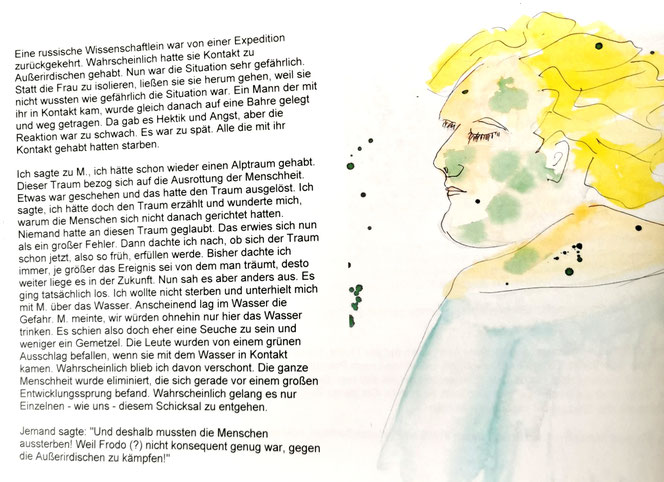 Eine russische Wissenschaftlein war von einer Expedition
zurückgekehrt. Wahrscheinlich hatte sie Kontakt zu
Außerirdischen gehabt. Nun war die Situation sehr gefährlich.
Statt die Frau zu isolieren, ließen sie sie herum gehen, weil sie
nicht wussten wie gefährlich die Situation war. Ein Mann der mit
ihr in Kontakt kam, wurde gleich danach auf eine Bahre gelegt
und weg getragen. Da gab es Hektik und Angst, aber die
Reaktion war zu schwach. Es war zu spät. Alle die mit ihr
Kontakt gehabt hatten starben.
Ich sagte zu M., ich hätte schon wieder einen Alptraum gehabt.
Dieser Traum bezog sich auf die Ausrottung der Menschheit.
Etwas war geschehen und das hatte den Traum ausgelöst. Ich
sagte, ich hätte doch den Traum erzählt und wunderte mich,
warum die Menschen sich nicht danach gerichtet hatten.
Niemand hatte an diesen Traum geglaubt. Das erwies sich nun
als ein großer Fehler. Dann dachte ich nach, ob sich der Traum
schon jetzt, also so früh, erfüllen werde. Bisher dachte ich
immer, je größer das Ereignis sei von dem man träumt, desto
weiter liege es in der Zukunft. Nun sah es aber anders aus. Es
ging tatsächlich los. Ich wollte nicht sterben und unterhielt mich
mit M. über das Wasser. Anscheinend lag im Wasser die
Gefahr. M. meinte, wir würden ohnehin nur hier das Wasser
trinken. Es schien also doch eher eine Seuche zu sein und
weniger ein Gemetzel. Die Leute wurden von einem grünen
Ausschlag befallen, wenn sie mit dem Wasser in Kontakt
kamen. Wahrscheinlich blieb ich davon verschont. Die ganze
Menschheit wurde eliminiert, die sich gerade vor einem großen
Entwicklungssprung befand. Wahrscheinlich gelang es nur
Einzelnen - wie uns - diesem Schicksal zu entgehen.
Jemand sagte: "Und deshalb mussten die Menschen
aussterben! Weil Frodo (?) nicht konsequent genug war, gegen
die Außerirdischen zu kämpfen!"